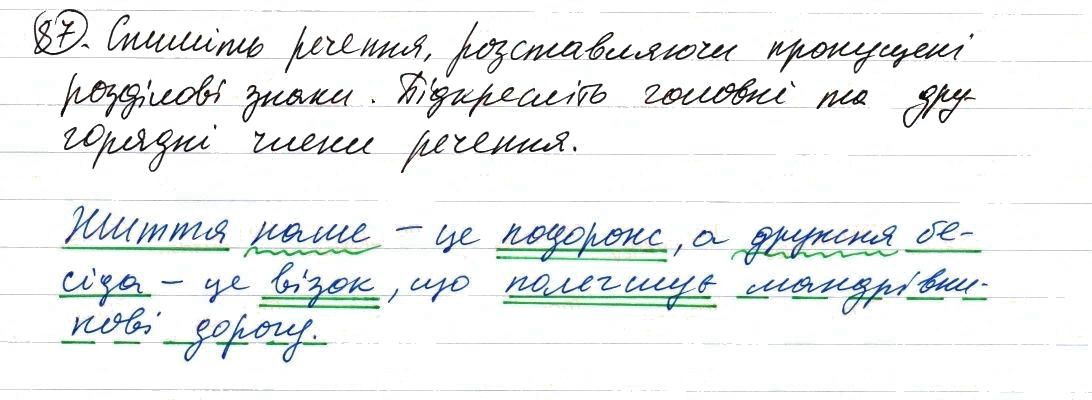 87. Спишіть речення, розставляючи пропущені
розділові знаки. Підкресліть головні та дру-
горядні члени речення.
Життя наше – це подорож, а дружня бе-
сіда – це візок, що полегшує мандрівни-
кові дорогу.